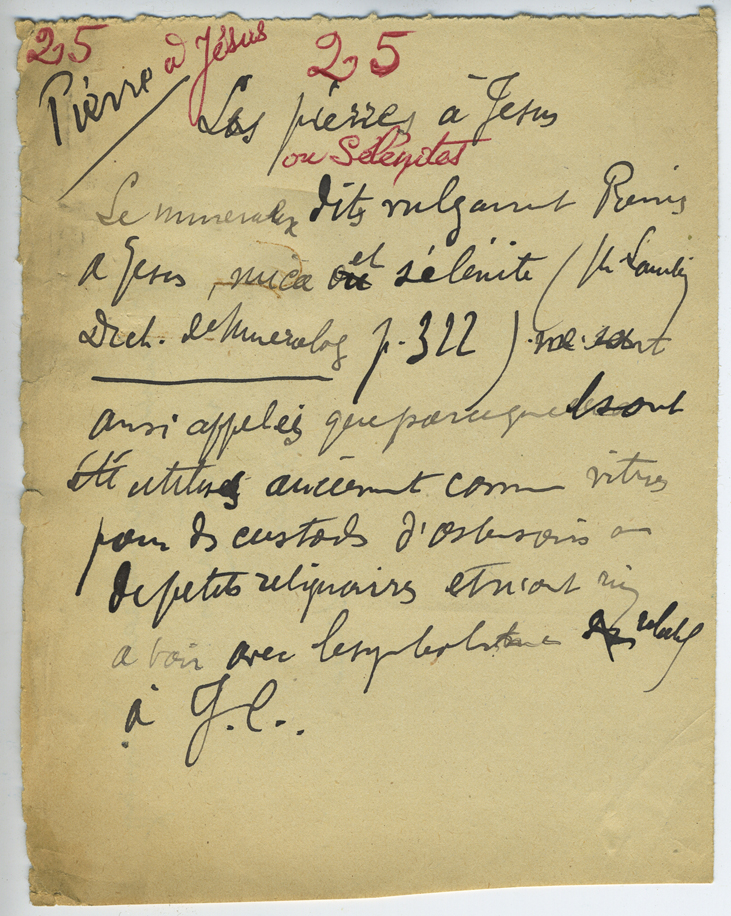 25 25
Pierre à Jésus
Les pierres à Jesus
ou Sélénites
Le mineralex dits vulgairmt Pierres
a Jesus, mica et sélénite (
Dict. de Mineralog p. 322) ne sont
ainsi appelées que parce qu'elles ont
été utilises anciennemt comme vitres
pour ds custods d'ostensoirs ou
de petits reliquaires et n'ont rien
a voir avec le symbolisme relatif
à J.C..